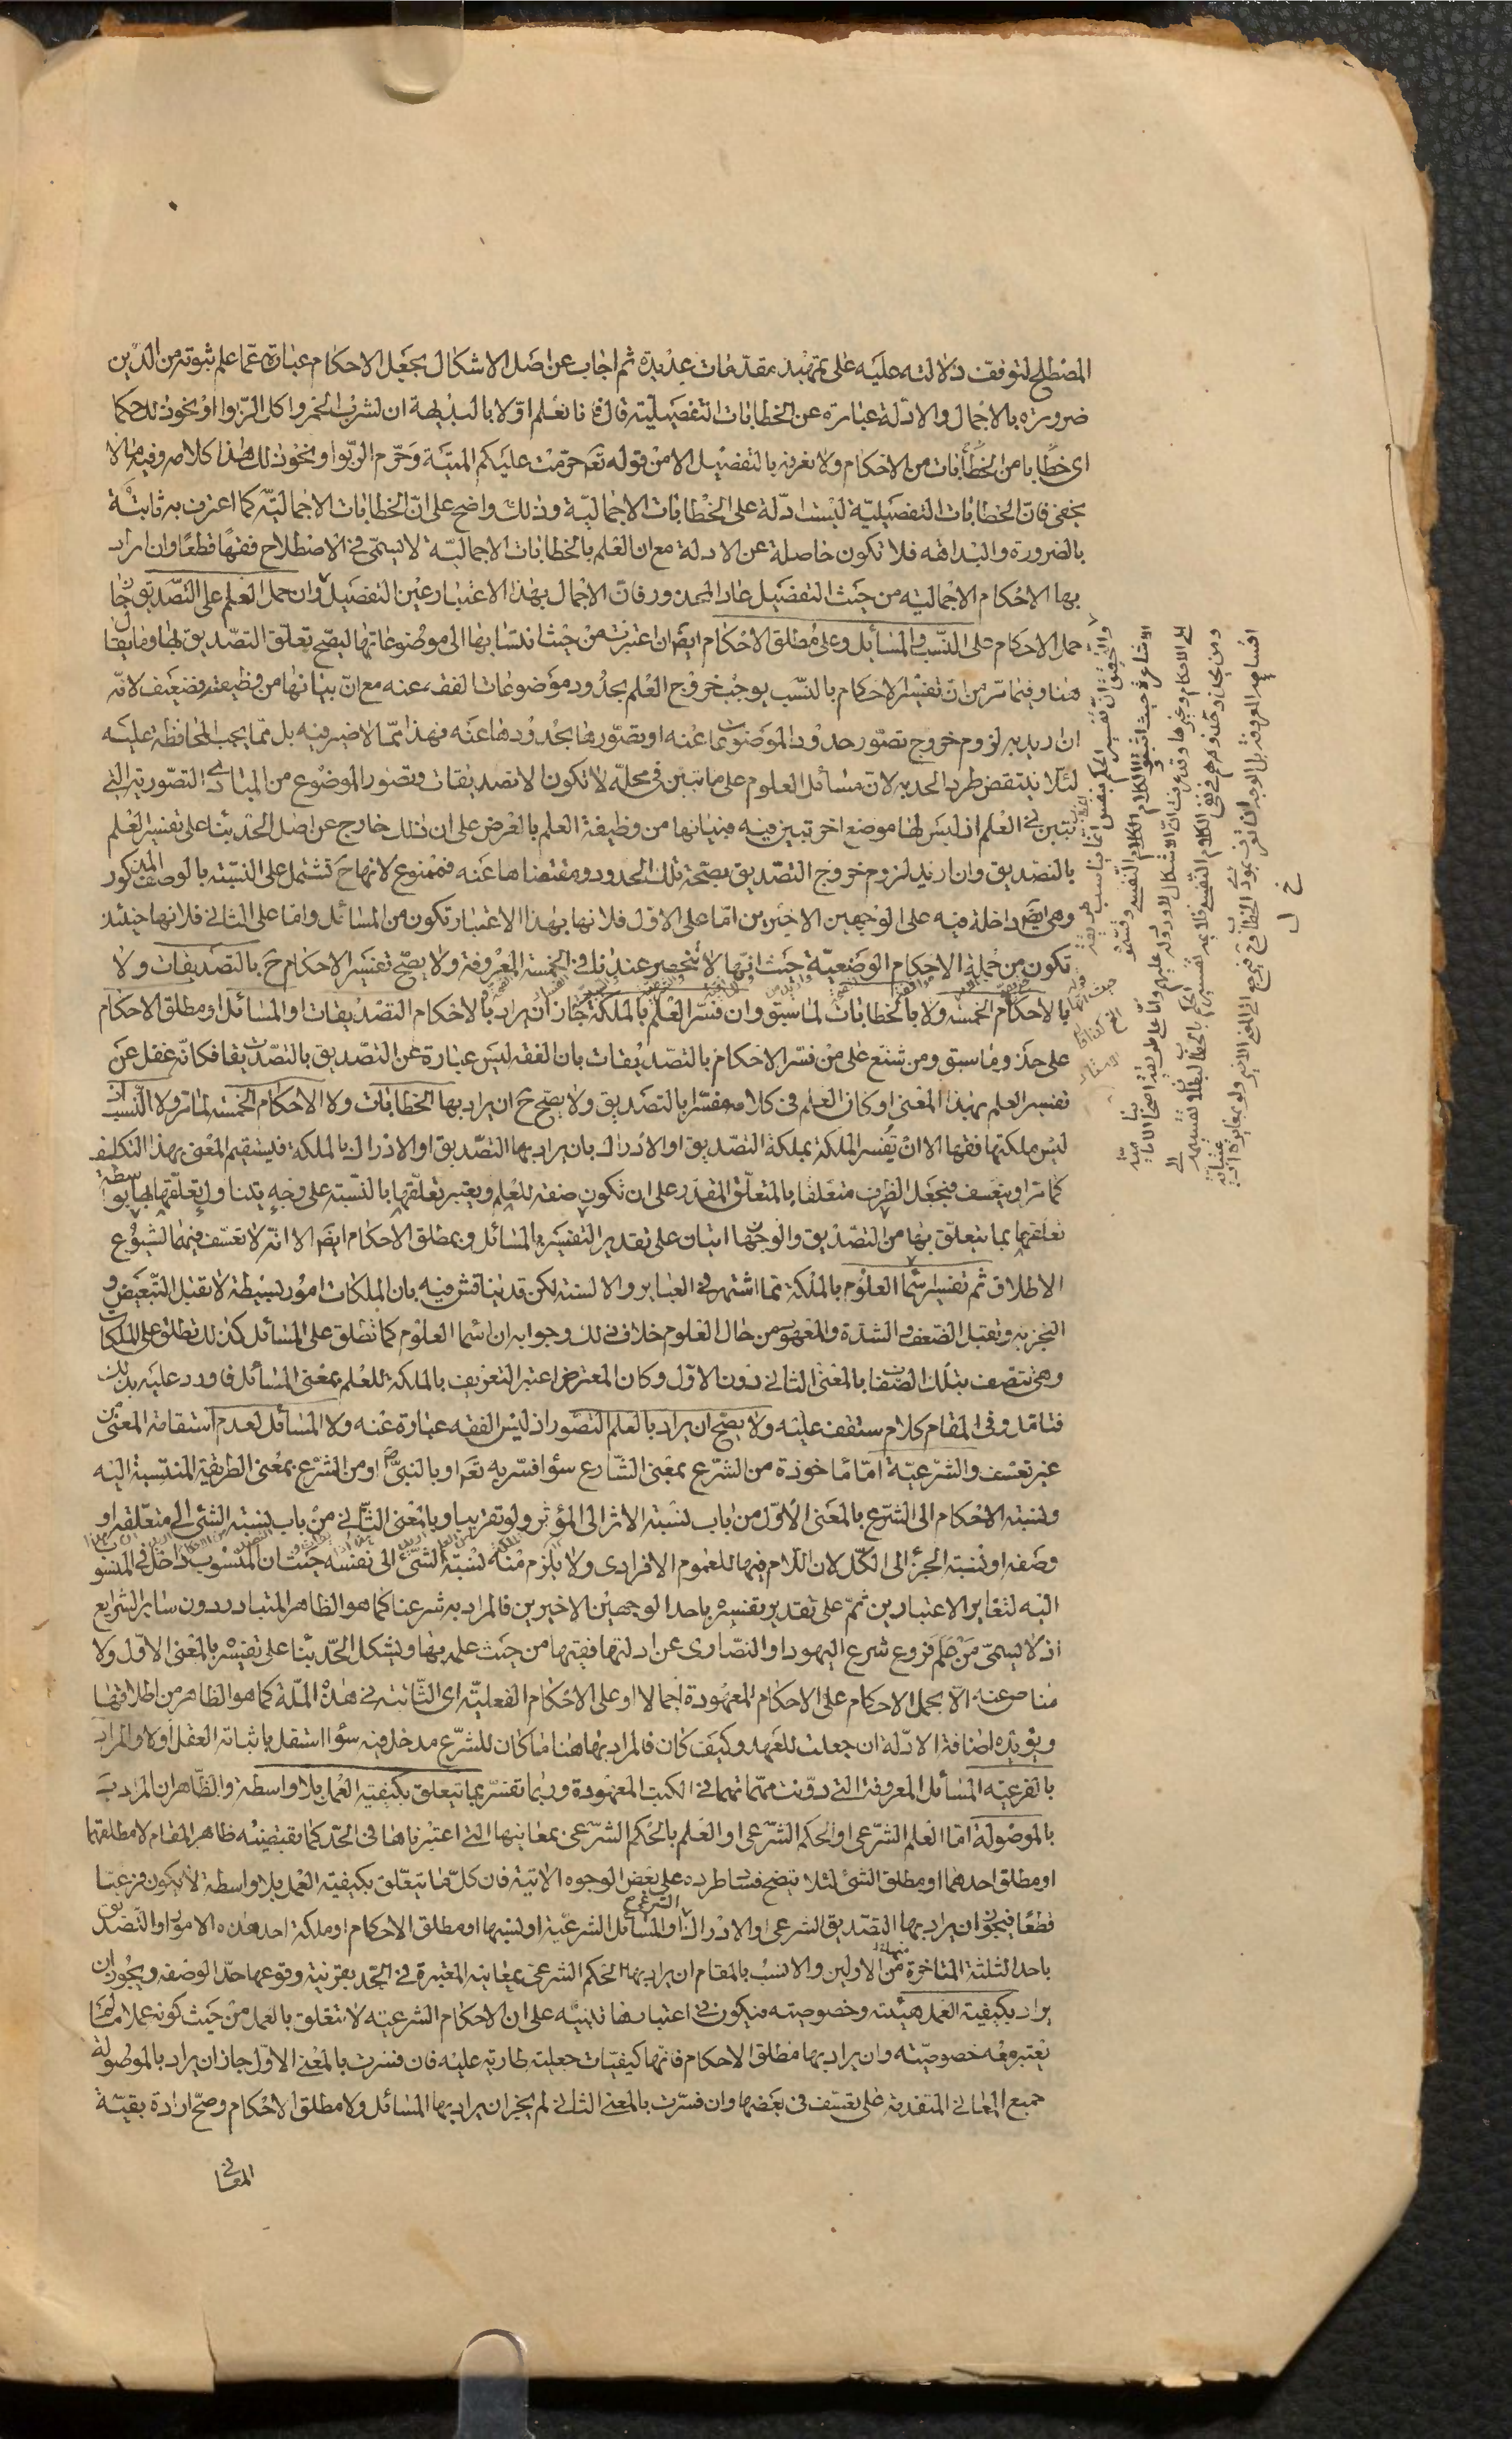 المصطلح لتوقف دلالته عليه على تمهيد مقدمات عديدة ثم اجاب عن اصل الاشكال بجعل الاحكام عبارة عما علم ثبوته من الدين
ضرورة بالاجمال والادلة عبارة عن الخطابات التفصيلية قال فانا نعلم اولا بالبديهة ان لشرب الخمر واكل الربوا ونحو ذلك حكما
اى خطابا من الخطابات من الاحكام ولا نعرفه بالتفصيل الا من قوله تعم حرمت عليكم الميتة وحرم الربوا ونحو ذلك هذا كلامه وفيه ما لا
يخفى فان الخطابات التفصيلية ليست ادلة على الخطابات الاجمالية وذلك واضح على ان الخطابات الاجمالية كما اعترف به ثابتة
بالضرورة والبداهة فلا تكون حاصلة عن الادلة مع ان العلم بالخطابات الاجمالية لا يسمى في الاصطلاح فقها قطعا وان اراد
بها الاحكام الاجمالية من حيث التفصيل عاد المحذور فان الاجمال بهذا الاعتبار عين التفصيل وان حمل العلم على التصديق جاز
حمل الاحكام على النسب والمسائل وعلى مطلق الاحكام ايضا ان اعتبرت من حيث انتسابها الى موضوعاتها ليصح تعلق التصديق بها وما يقا
هنا وفيما مر من ان تفسير الاحكام بالنسب يوجب خروج العلم بحدود موضوعات الفقه عنه مع ان بيانها من وظيفته فضعيف لانه
ان اريد به لزوم خروج تصور حدود الموضوعات عنه او تصورها بحدودها عنه فهذا مما لا ضير فيه بل مما يجب المحافظة عليه
لئلا ينتقض طرد الحد به لان مسائل العلوم على ما تبين في محله لا تكون الا تصديقات وتصور الموضوع من المبادى التصورية التي
تتبين في العلم اذ ليس لها موضع اخر تبين فيه فبيانها من وظيفة العلم بالعرض على ان ذلك خارج عن اصل الحد بناء على تفسير العلم
بالتصديق وان اريد لزوم خروج التصديق بصحة تلك الحدود ومقتضاها عنه فممنوع لانها ح تشتمل على النسبة بالوصف المذكور
وهى ايضا داخلة فيه على الوجهين الاخيرين اما على الاول فلانها بهذا الاعتبار تكون من المسائل واما على الثاني فلانها حينئذ
تكون من جملة الاحكام الوضعية حيث انها لا تنحصر عندنا في الخمسة المعروفة ولا يصح تفسير الاحكام ح بالتصديقات ولا
بالاحكام الخمسة ولا بالخطابات لما سبق وان فسر العلم بالملكة جاز ان يراد بالاحكام التصديقات او المسائل او مطلق الاحكام
على حذو ما سبق ومن شنع على من فسر الاحكام بالتصديقات بان الفقه ليس عبارة عن التصديق بالتصديقات فكانه غفل عن
تفسير العلم بهذا المعنى او كان العلم في كلامه مفسرا بالتصديق ولا يصح ح ان يراد بها الخطابات ولا الاحكام الخمسة لما مر ولا النسب اذ
ليس ملكتها فقها الا ان يفسر الملكة بملكة التصديق او الادراك بان يراد بها التصديق او الادراك بالملكة فيستقيم المعنى بهذا التكليف
كما مر او يتعسف فيجعل الظرف متعلقا بالمتعلق المقدر على ان تكون صفة للعلم ويعتبر تعلقها بالنسبة على وجه يتناول تعلقها بها بواسطة
تعلقها بما يتعلق بها من التصديق والوجهان اتيان على تقدير التفسير بالمسائل وبمطلق الاحكام ايضا الا انه لا تعسف فيهما لشيوع
الاطلاق ثم تفسير اسماء العلوم بالملكة مما اشتهر في العباير والالسنة لكن قد يناقش فيه بان الملكات امور بسيطة لا تقبل التبعيض و
التجزية وتقبل الضعف والشدة والمعهود من حال العلوم خلاف ذلك وجوابه ان اسماء العلوم كما تطلق على المسائل كذلك تطلق على الملكات
وهى تتصف بتلك الصفات بالمعنى الثاني دون الاول وكان المعترض اعتبر التعريف بالملكة للعلم بمعنى المسائل فاورد عليه بذلك
فتامل وفى المقام كلام ستقف عليه ولا يصح ان يراد بالعلم التصور اذ ليس الفقه عبارة عنه ولا المسائل لعدم استقامة المعنى من
غير تعسف والشرعية اما ماخوذة من الشرع بمعنى الشارع سواء فسر به تعم او بالنبى ص او من الشرع بمعنى الطريقة المنتسبة اليه
ونسبة الاحكام الى الشرع بالمعنى الاول من باب نسبة الاثر الى المؤثر ولو تقريبا وبالمعنى الثاني من باب نسبة الشئ الى متعلقه او
وصفه او نسبة الجزء الى الكل لان اللام فيها للعموم الافرادى ولا يلزم منه نسبة الشئ الى نفسه حيث ان المنسوب داخل في المنسوب
اليه لتغاير الاعتبارين ثم على تقدير تفسيره باحد الوجهين الاخيرين فالمراد به شرعنا كما هو الظاهر المتبادر دون ساير الشرايع
اذ لا يسمى من علم فروع شرع اليهود او النصارى عن ادلتها فقيها من حيث علمه بها ويشكل الحد بناء على تفسيره بالمعنى الاول ولا
مناص عنه الا بحمل الاحكام على الاحكام المعهودة اجمالا او على الاحكام الفعلية اى الثابتة في هذه الملة كما هو الظاهر من اطلاقها
ويؤيده اضافة الادلة ان جعلت للعهد وكيف كان فالمراد بها هنا ما كان للشرع مدخل فيه سواء استقل باثباته العقل اولا والمراد
بالفرعية المسائل المعروفة التي دونت مهماتها في الكتب المعهودة وربما تفسر بما يتعلق بكيفية العمل بلا واسطة والظاهر ان المراد
بالموصولة اما العلم الشرعى او الحكم الشرعى او العلم بالحكم الشرعى بمعانيها التي اعتبرناها في الحد كما يقتضيه ظاهر المقام لا مطلقهما
او مطلق احدهما او مطلق الشئ لئلا يتضح فساد طرده على بعض الوجوه الاتية فان كل ما يتعلق بكيفية العمل بلا واسطة لا يكون فرعيا
قطعا فيجوز ان يراد بها التصديق الشرعى او الادراك الشرعى او المسائل الشرعية او نسبها او مطلق الاحكام او ملكة احد هذه الامور او التصديق
باحد الثلثة المتاخرة منها لا من الاولين والانسب بالمقام ان يراد بها الحكم الشرعى بمعانيه المعتبرة في الحد بقرينة وقوعها حد الوصفه ويجوز ان
يراد بكيفية العمل هيئته وخصوصيته فيكون في اعتبارها تنبيه على ان الاحكام الشرعية لا تتعلق بالعمل من حيث كونه عملا ما لم
يعتبر معه خصوصيته وان يراد بها مطلق الاحكام فانها كيفيات جعلية طارية عليه فان فسرت بالمعنى الاول جاز ان يراد بالموصولة
جميع المعاني المتقدمة على تعسف في بعضها وان فسرت بالمعنى الثاني لم يجز ان يراد بها المسائل ولا مطلق الاحكام وصح ارادة بقية
المعاني